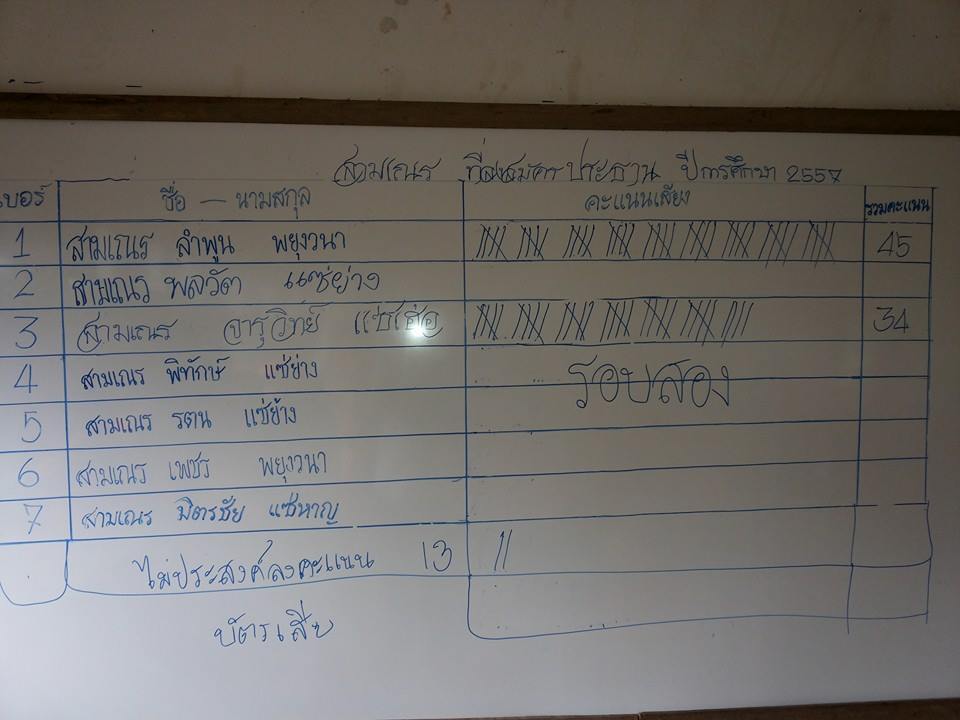 สามเณร ที่ลงสมัครประธาน ปีการศึกษา 2557
เบอร์ ชื่อ - นามสกุล คะแนนเสียง รวมคะแนน
1 สามเณร ลำพูน พยุงวนา 45
2 สามเณร พลวัต แซ่ย่าง
3 สามเณร จารุวิทย์ แซ่เฮ่อ 34
4 สามเณร พิทักษ์ แซ่ย่าง รอบสอง
5 สามเณร รตน แซ่ย้าง
6 สามเณร เพชร พยุงวนา
7 สามเณร มิตรชัย แซ่หาญ
ไม่ประสงค์ลงคะแนน 13
บัตรเสีย